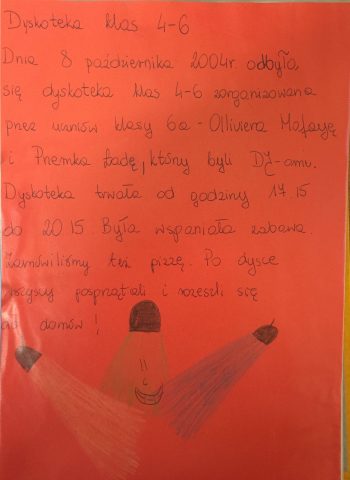 Dyskoteka klas 4-6
Dnia 8 października 2004r. odbyła
się dyskoteka klas 4-6 zorganizowana
przez uczniów klasy 6a - Olliviera Mafayę
i Przemka Ładę, który byli DJ-ami.
Dyskoteka trwała od godziny 17 15
do 20 15. Była wspaniała zabawa.
Zamówiliśmy też pizzę. Po dysce
wszyscy posprzątali i rozeszli się
do domów!